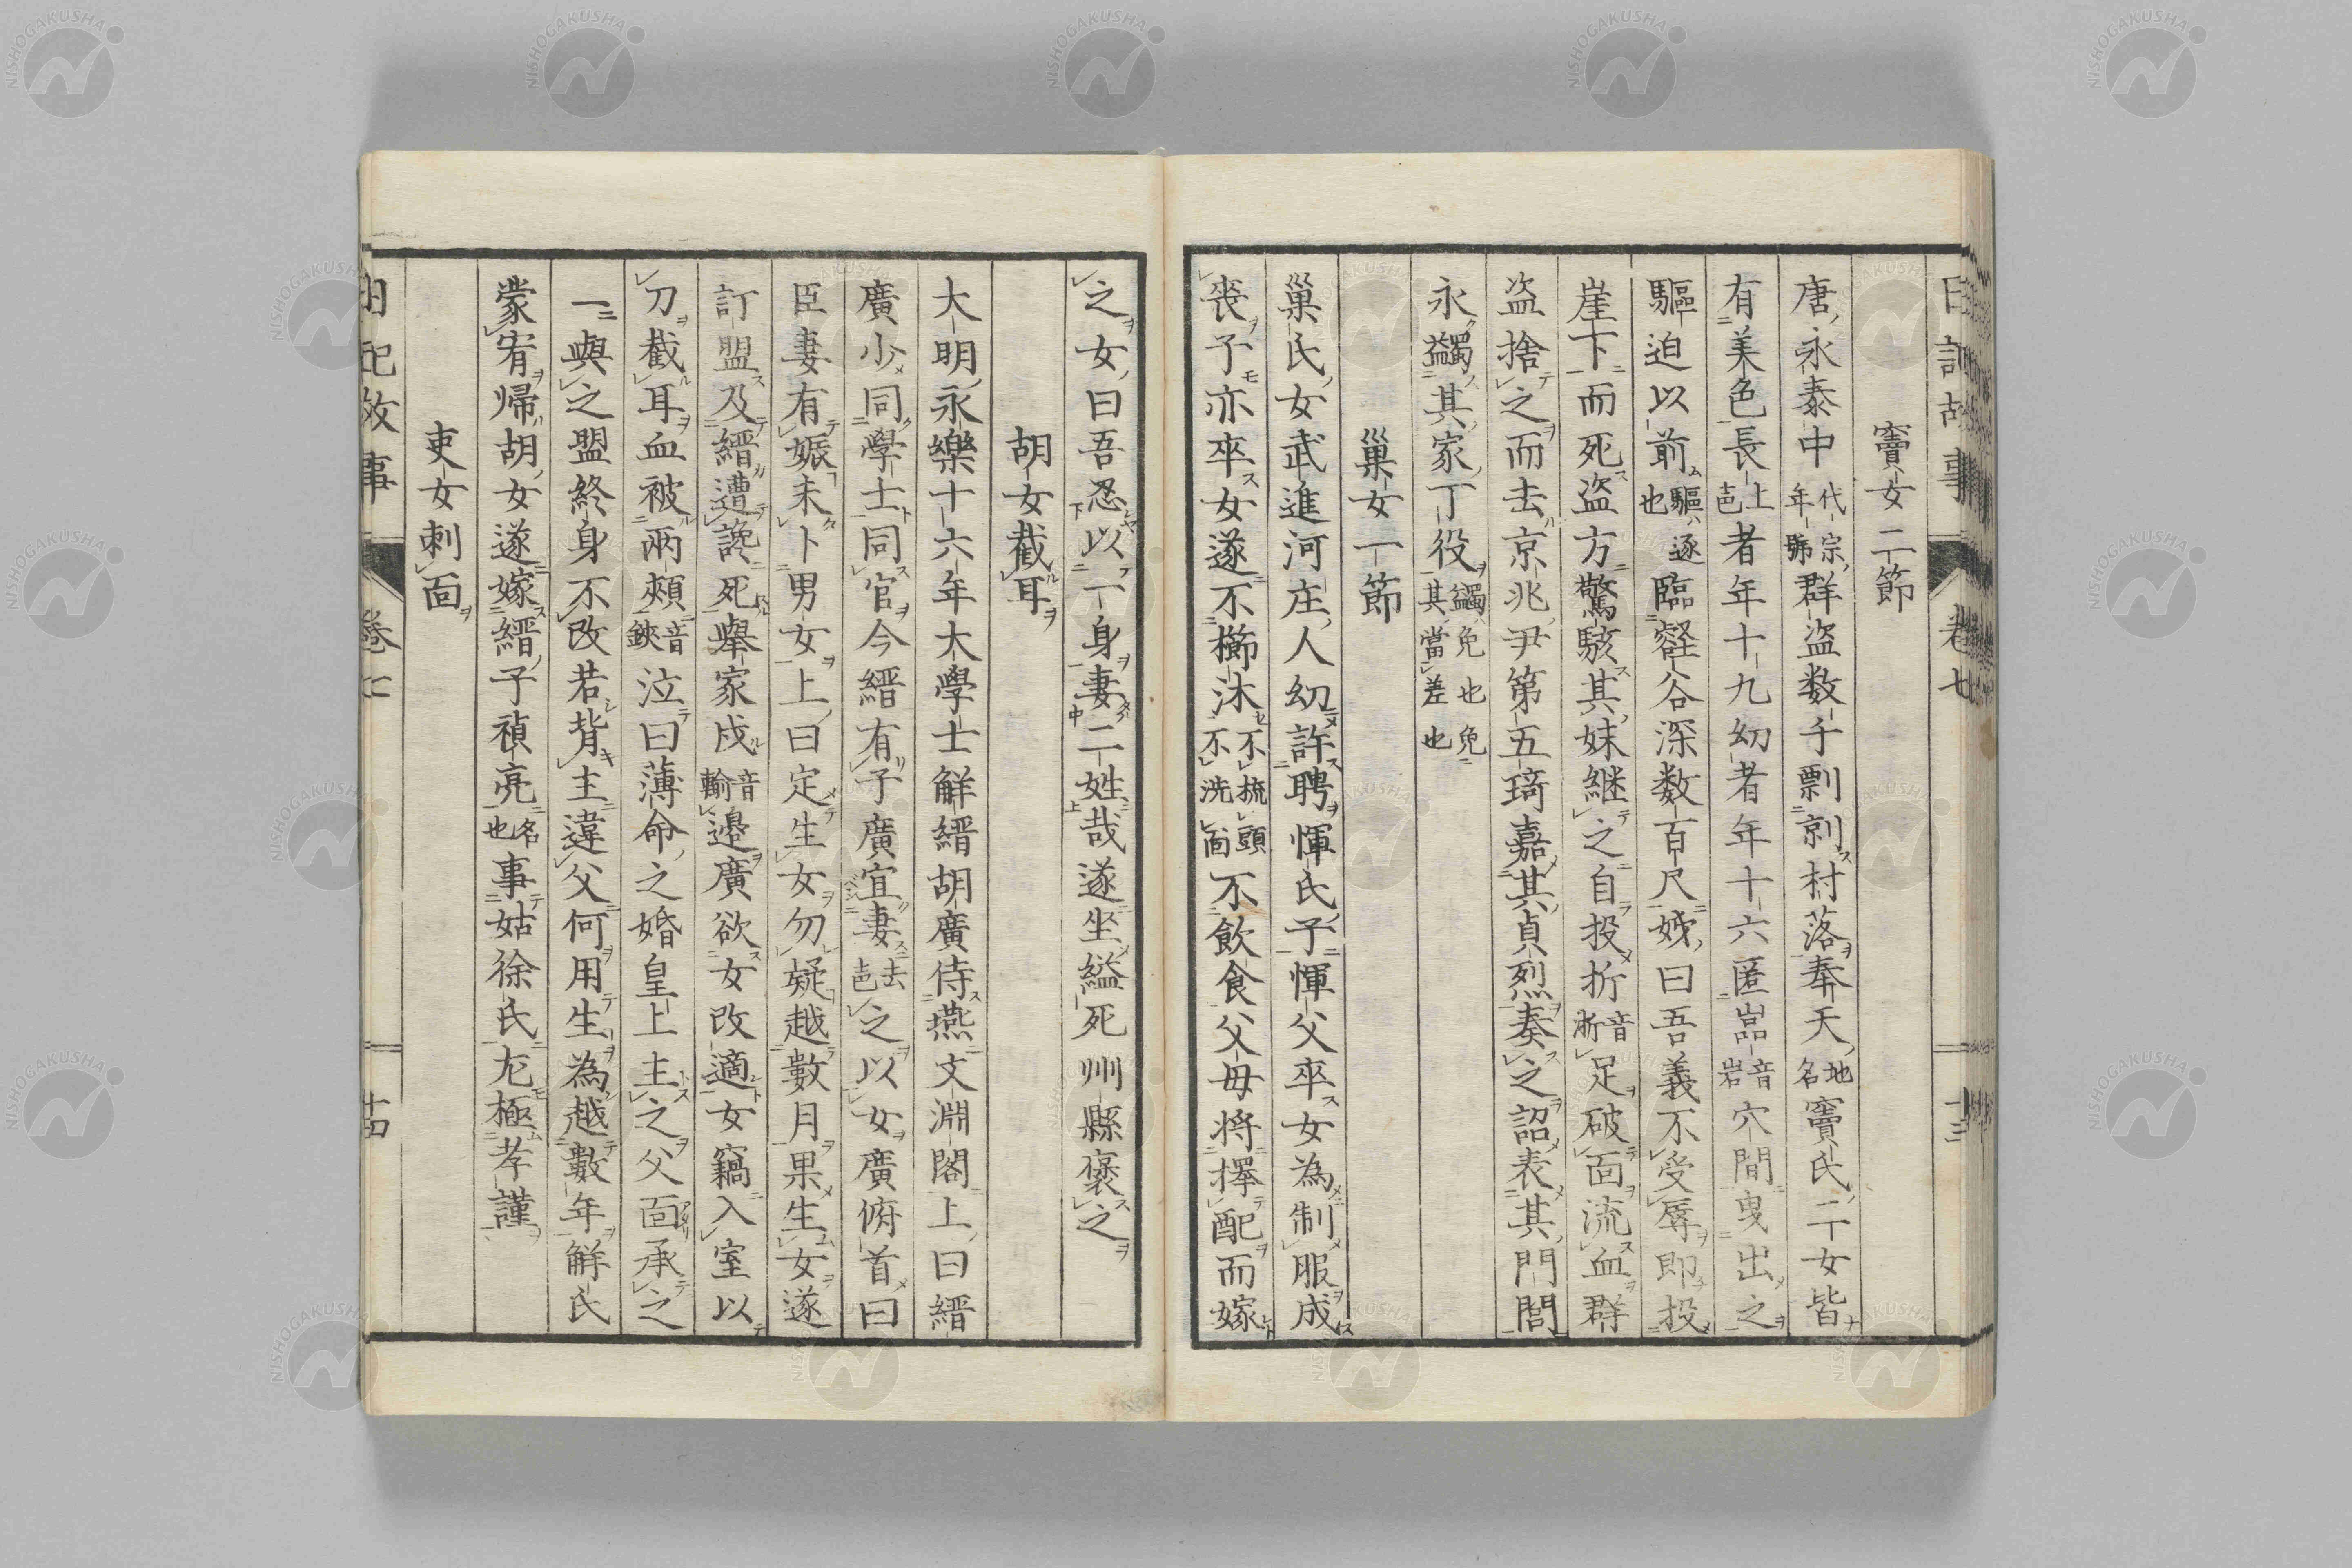 日記故事 卷七 十三
竇女二節
唐永泰中代宗年號群盜数千剽剠村落奉天地名竇氏二女皆
有美色長上声者年十九幼者年十六匿嵓音岩穴間曳出之
驅迫以前驅逐也臨壑谷深数百尺姊曰吾義不受辱即投
崖下而死盜方驚駭其妹継之自投折音浙足破面流血群
盜捨之而去京兆尹第五琦嘉其貞烈奏之詔表其門閭
永蠲其家丁役蠲免也免其當差也
巢女一節
巢氏女武進河庄人幼許聘惲氏子惲父卒女為制服成
喪子亦卒女遂不櫛沐不梳頭不洗面不飲食父母将擇配而嫁
之女曰吾忍以一身妻二姓哉遂坐縊死州縣褒之
胡女截耳
大明永樂十六年大學士解縉胡廣侍燕文淵閣上曰縉
廣少同學士同官今縉有子廣宜妻去声之以女廣俯首曰
臣妻有娠未卜男女上曰定生女勿疑越數月果生女遂
訂盟及縉遭讒死舉家戍音輸邉廣欲女改適女竊入室以
刀截耳血被兩頰音鋏泣曰薄命之婚皇上主之父面承之
一與之盟終身不改若背主違父何用生為越數年解氏
蒙宥帰胡女遂嫁縉子禎亮名也事姑徐氏尤極孝謹
吏女刺面
日記故事 卷七 十四